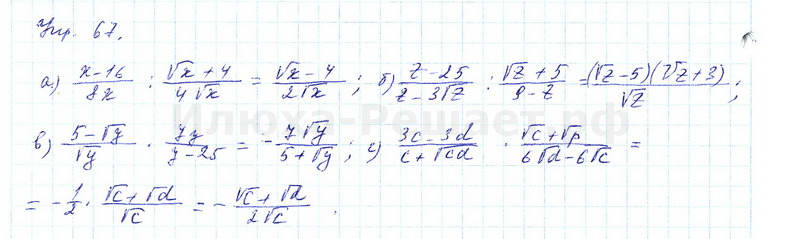 Упр. 67.
а) (x-16)/(8x) : (√x+4)/(4√x) = (√x-4)/(2√x); б) (z-25)/(z-3√z) : (√z+5)/(9-z) = (√z-5)(√z+3)/√z;
в) (5-√y)/√y · 7y/(y-25) = -7√y/(5+√y); г) (3c-3d)/(c+√cd) · (√c+√p)/(6√d-6√c) =
= -1/2 · (√c+√d)/√c = -(√c+√d)/(2√c)
Илюха-Решает.рф